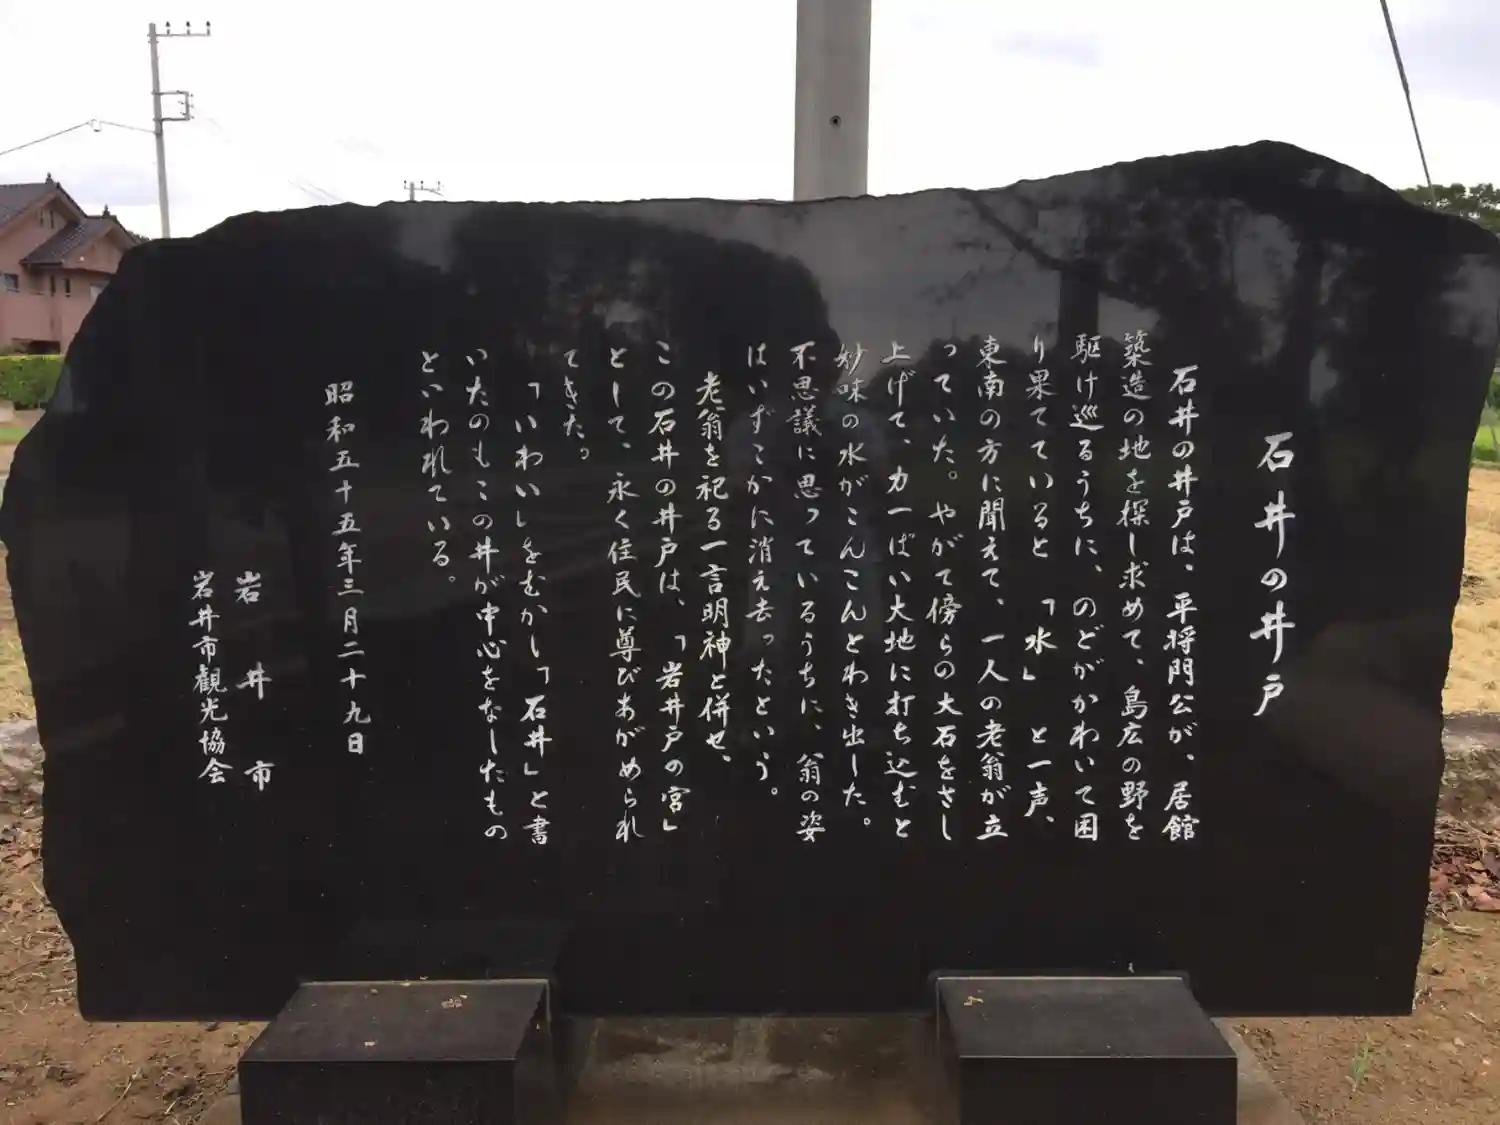 石井の井戸
石井の井戸は、平将門公が、居館
築造の地を探し求めて、島広の野を
駆け巡るうちに、のどがかわいて困
り果てていると 「水」 と一声、
東南の方に聞えて、一人の老翁が立
っていた。やがて傍らの大石をさし
上げて、力一ぱい大地に打ち込むと
妙味の水がこんこんとわき出した。
不思議に思っているうちに、翁の姿
はいずこかに消え去ったという。
老翁を祀る一言明神と併せ、
この石井の井戸は、「岩井戸の宮」
として、永く住民に尊びあがめられ
てきた。
「いわい」をむかし「石井」と書
いたのもこの井が中心をなしたもの
といわれている。
昭和五十五年三月二十九日
岩井市
岩井市観光協会